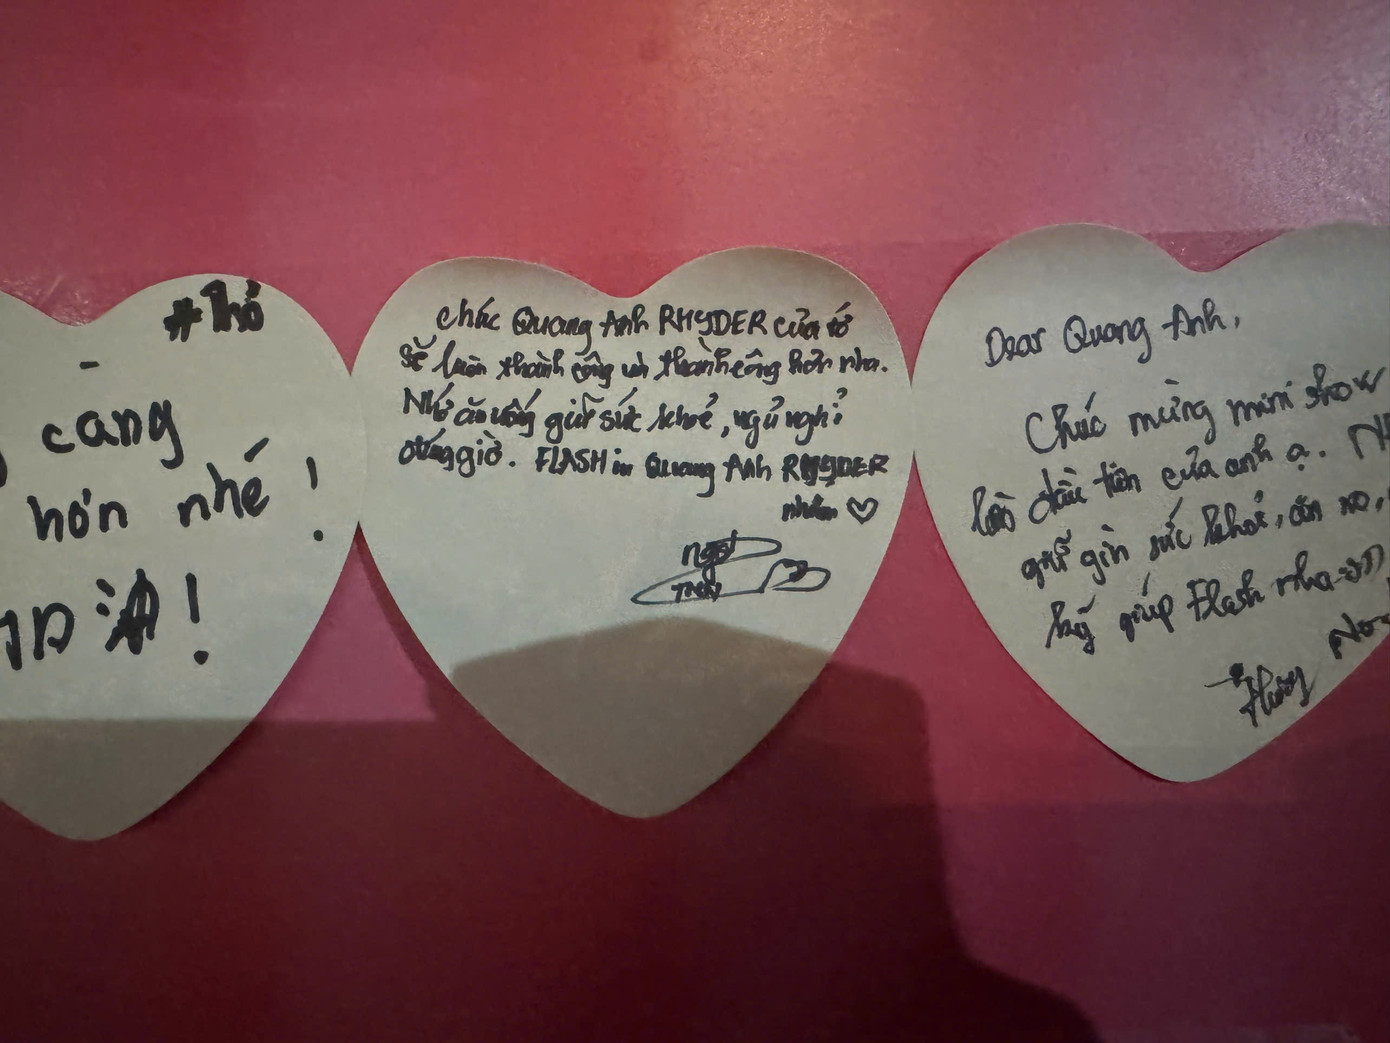 #Thỏ
càng
hơn nhé !
!
Chúc Quang Anh RHYDER của tớ
sẽ luôn thành công và thành công hơn nha.
Nhớ ăn uống giữ sức khoẻ, ngủ nghỉ
đúng giờ. FLASH iu Quang Anh RHYDER
nhắm ♡
Ngọc
Dear Quang Anh,
Chúc mừng mini show
lần đầu tiên của anh ạ.
giữ gìn sức khoẻ, ăn no,
kỹ giúp Flash nha